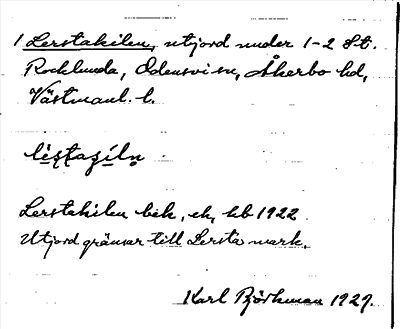 1 Lerstakilen, utjord under 1-2 St.
Rocklunda, Odensvi sn, Åkerbo hd,
Västmanl. l.
Lerstakilen bek, ek, kb 1922
Utjord gränsar till Lersta mark.
Karl Björkman 1929.